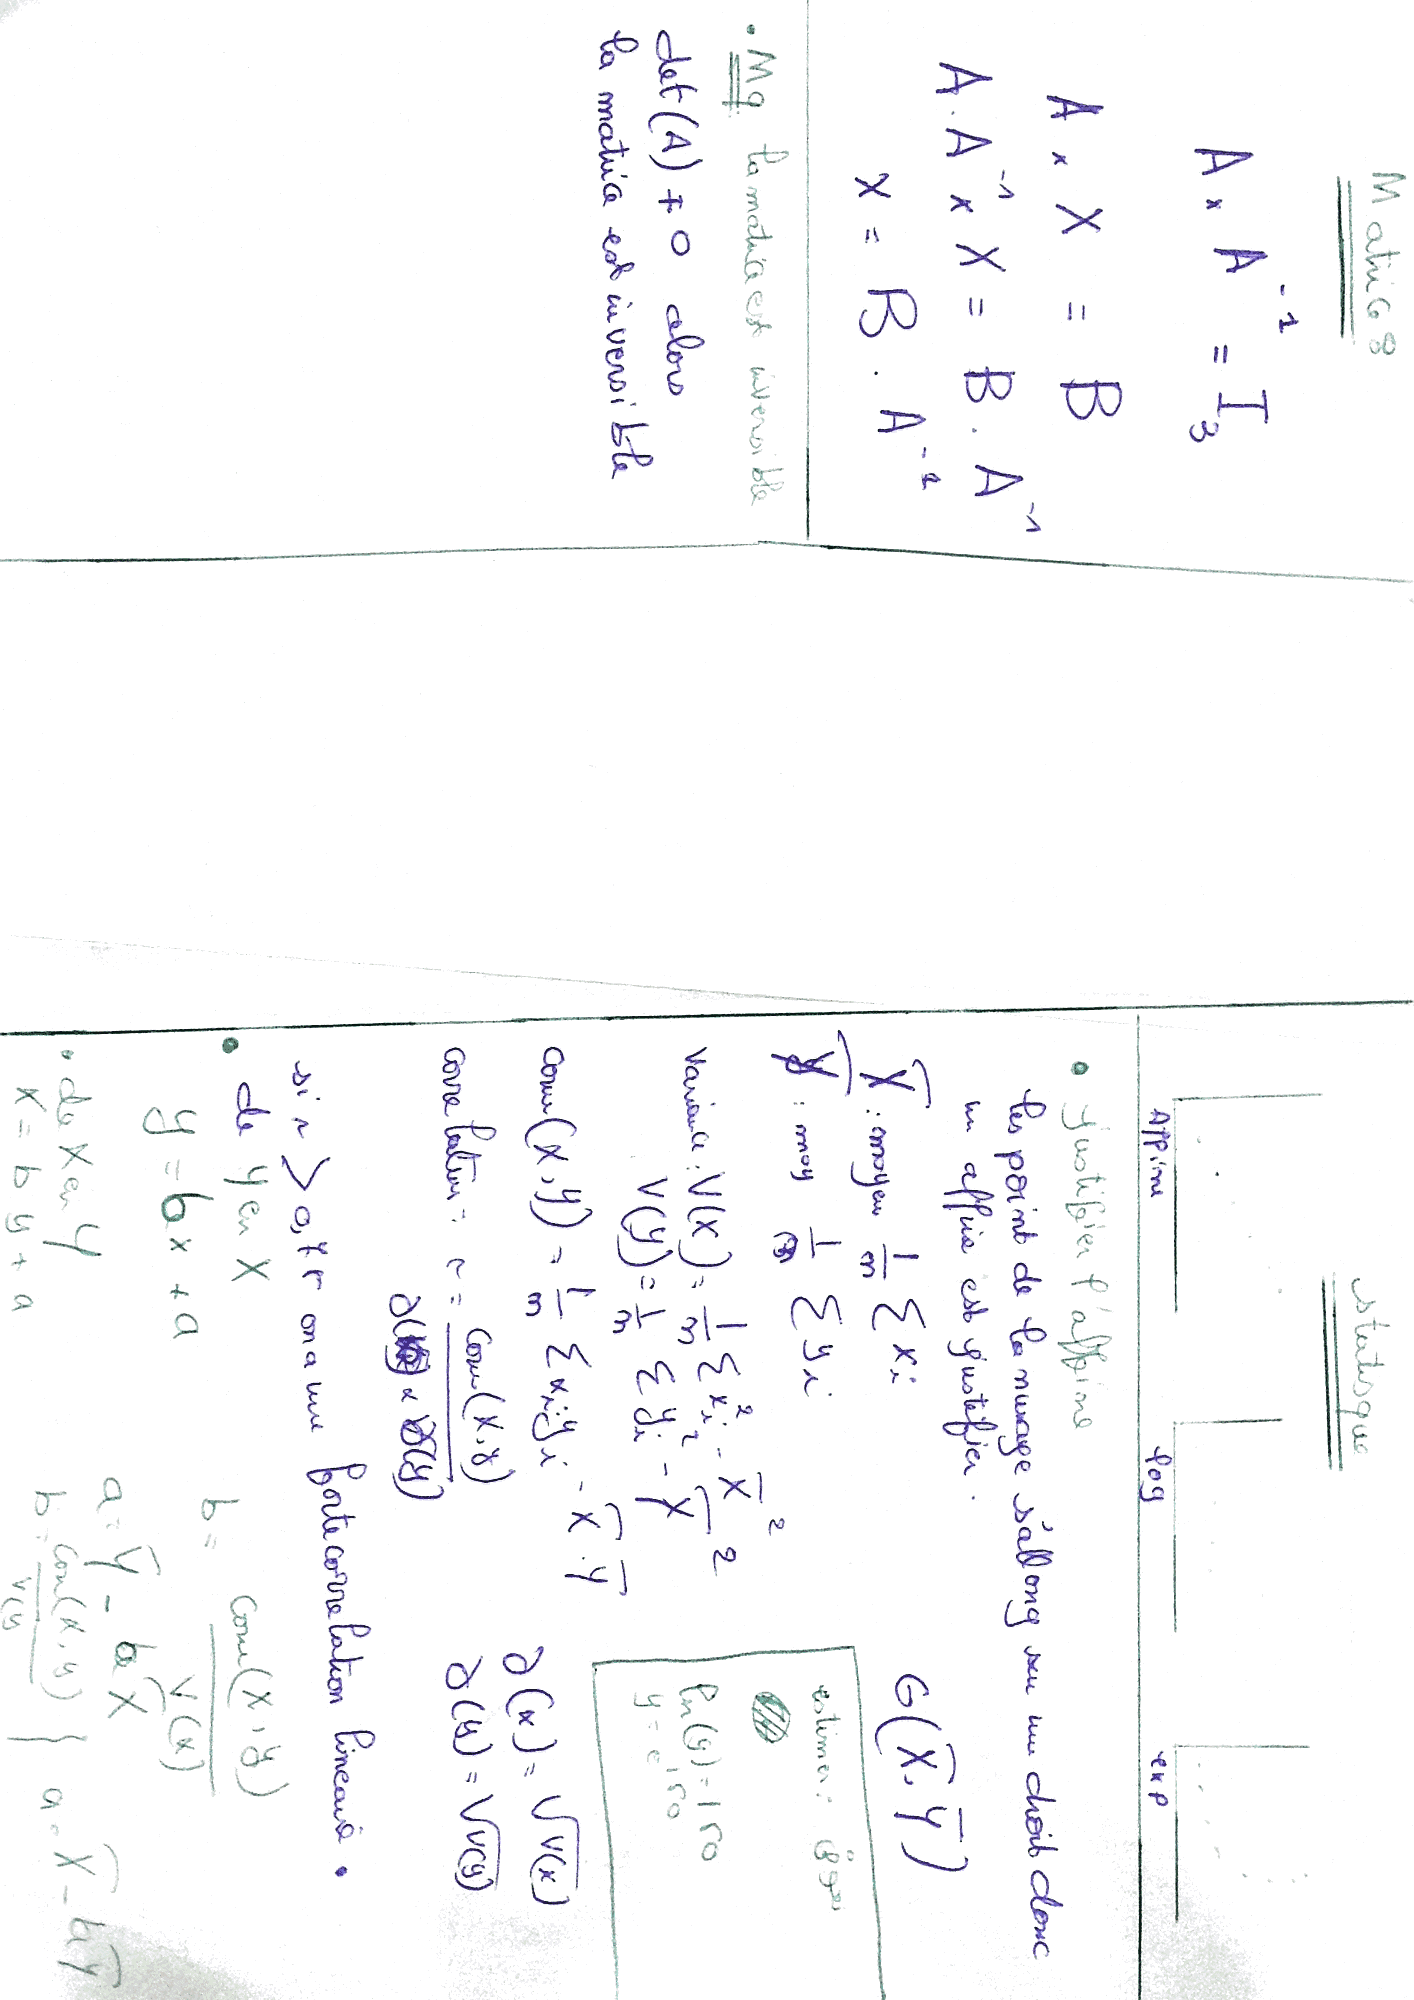 Matrice 8
A × A⁻¹ = I₃
A × X = B
A . A⁻¹ × X = B . A⁻¹
X = B . A⁻¹
• Mq la matrice est inversible
det(A) ≠ 0 alors
la matrice est inversible
statisque
Affine log exp
• justifier l'affine
les point de la nuage s'allong su une droit donc
un affin est justifier.
X̄ : moyen 1/n Σ xᵢ
Ȳ : moy 1/n Σ yᵢ
G(X̄, Ȳ)
Variance : V(X) = 1/n Σ xᵢ² - X̄²
V(y) = 1/n Σ yᵢ² - Ȳ²
estimer :
ln(y) = 150
y = e^150
Cov(X,y) = 1/n Σ xᵢyᵢ - X̄ . Ȳ
∂(x) = √V(x)
correlation : r = Cov(X,y) / ∂(x) × ∂(y)
∂(y) = √V(y)
si r > 0,75 on a une forte correlation lineaire .
• de y en X
y = bx + a
b = Cov(X,y) / V(x)
a = Ȳ - bX̄
• de X en y
x = by + a
b = Cov(x,y) / V(y) } a = X̄ - bȲ